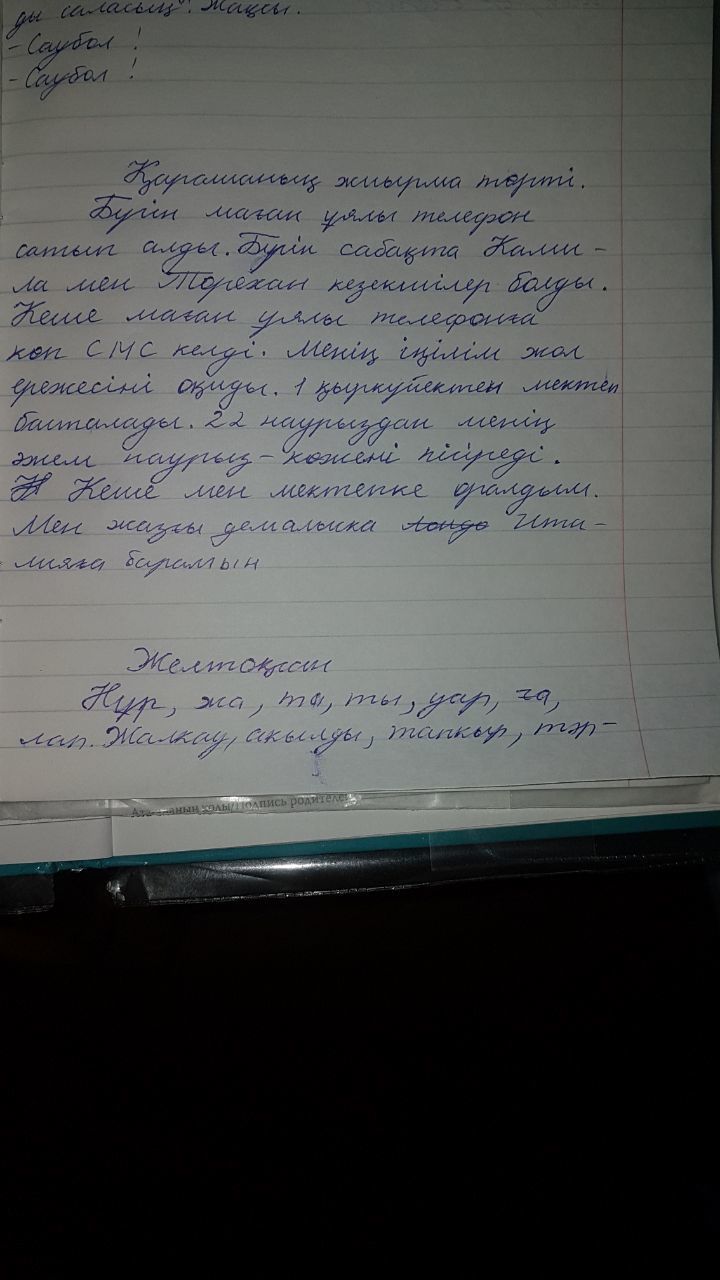 ды саласың". Жақсы.
- Саубол !
- Саубол !
Қарашаның жиырма төрті.
Бүгін маған ұялы телефон
сатып алды. Бүгін сабақта Ками -
ла мен Төрехан кезекшілер болды.
Кеше маған ұялы телефонға
көп СМС келді. Менің іңілім жол
ережесіні оқиды. 1 қыркүйектен мектеп
басталады. 22 наурыздан менің
әжем наурыз - көжені пісіреді.
Кеше мен мектепке оралдым.
Мен жазғы демалыска Лондо Ита -
лияға барамын
Желтоқсан
Нұр, жа, та, ты, уар, ға,
лап. Жалкау, акылды, тапкыр, тәр-
Ата-ананың қолы/Подпись родителе